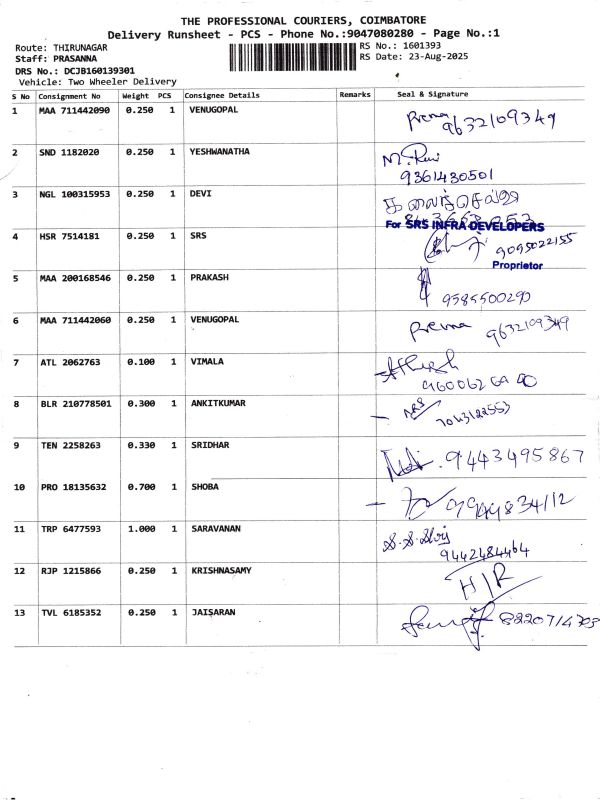 THE PROFESSIONAL COURIERS, COIMBATORE
Delivery Runsheet - PCS - Phone No.:9047080280 - Page No.:1
Route: THIRUNAGAR RS No.: 1601393
Staff: PRASANNA RS Date: 23-Aug-2025
DRS No.: DCJB160139301
Vehicle: Two Wheeler Delivery
S No Consignment No Weight PCS Consignee Details Remarks Seal & Signature
1 MAA 711442090 0.250 1 VENUGOPAL Prema 9632109349
2 SND 1182020 0.250 1 YESHWANATHA M. Ravi 9361430501
3 NGL 100315953 0.250 1 DEVI கலைச்செல்வி
For SRS INFRA DEVELOPERS
4 HSR 7514181 0.250 1 SRS 9095022155
Proprietor
5 MAA 200168546 0.250 1 PRAKASH 9585500290
6 MAA 711442060 0.250 1 VENUGOPAL Prema 9632109349
7 ATL 2062763 0.100 1 VIMALA
8 BLR 210778501 0.300 1 ANKITKUMAR 7043122553
9 TEN 2258263 0.330 1 SRIDHAR 9443495867
10 PRO 18135632 0.700 1 SHOBA
11 TRP 6477593 1.000 1 SARAVANAN 9442484464
12 RJP 1215866 0.250 1 KRISHNASAMY H/R
13 TVL 6185352 0.250 1 JAISARAN 8220714703